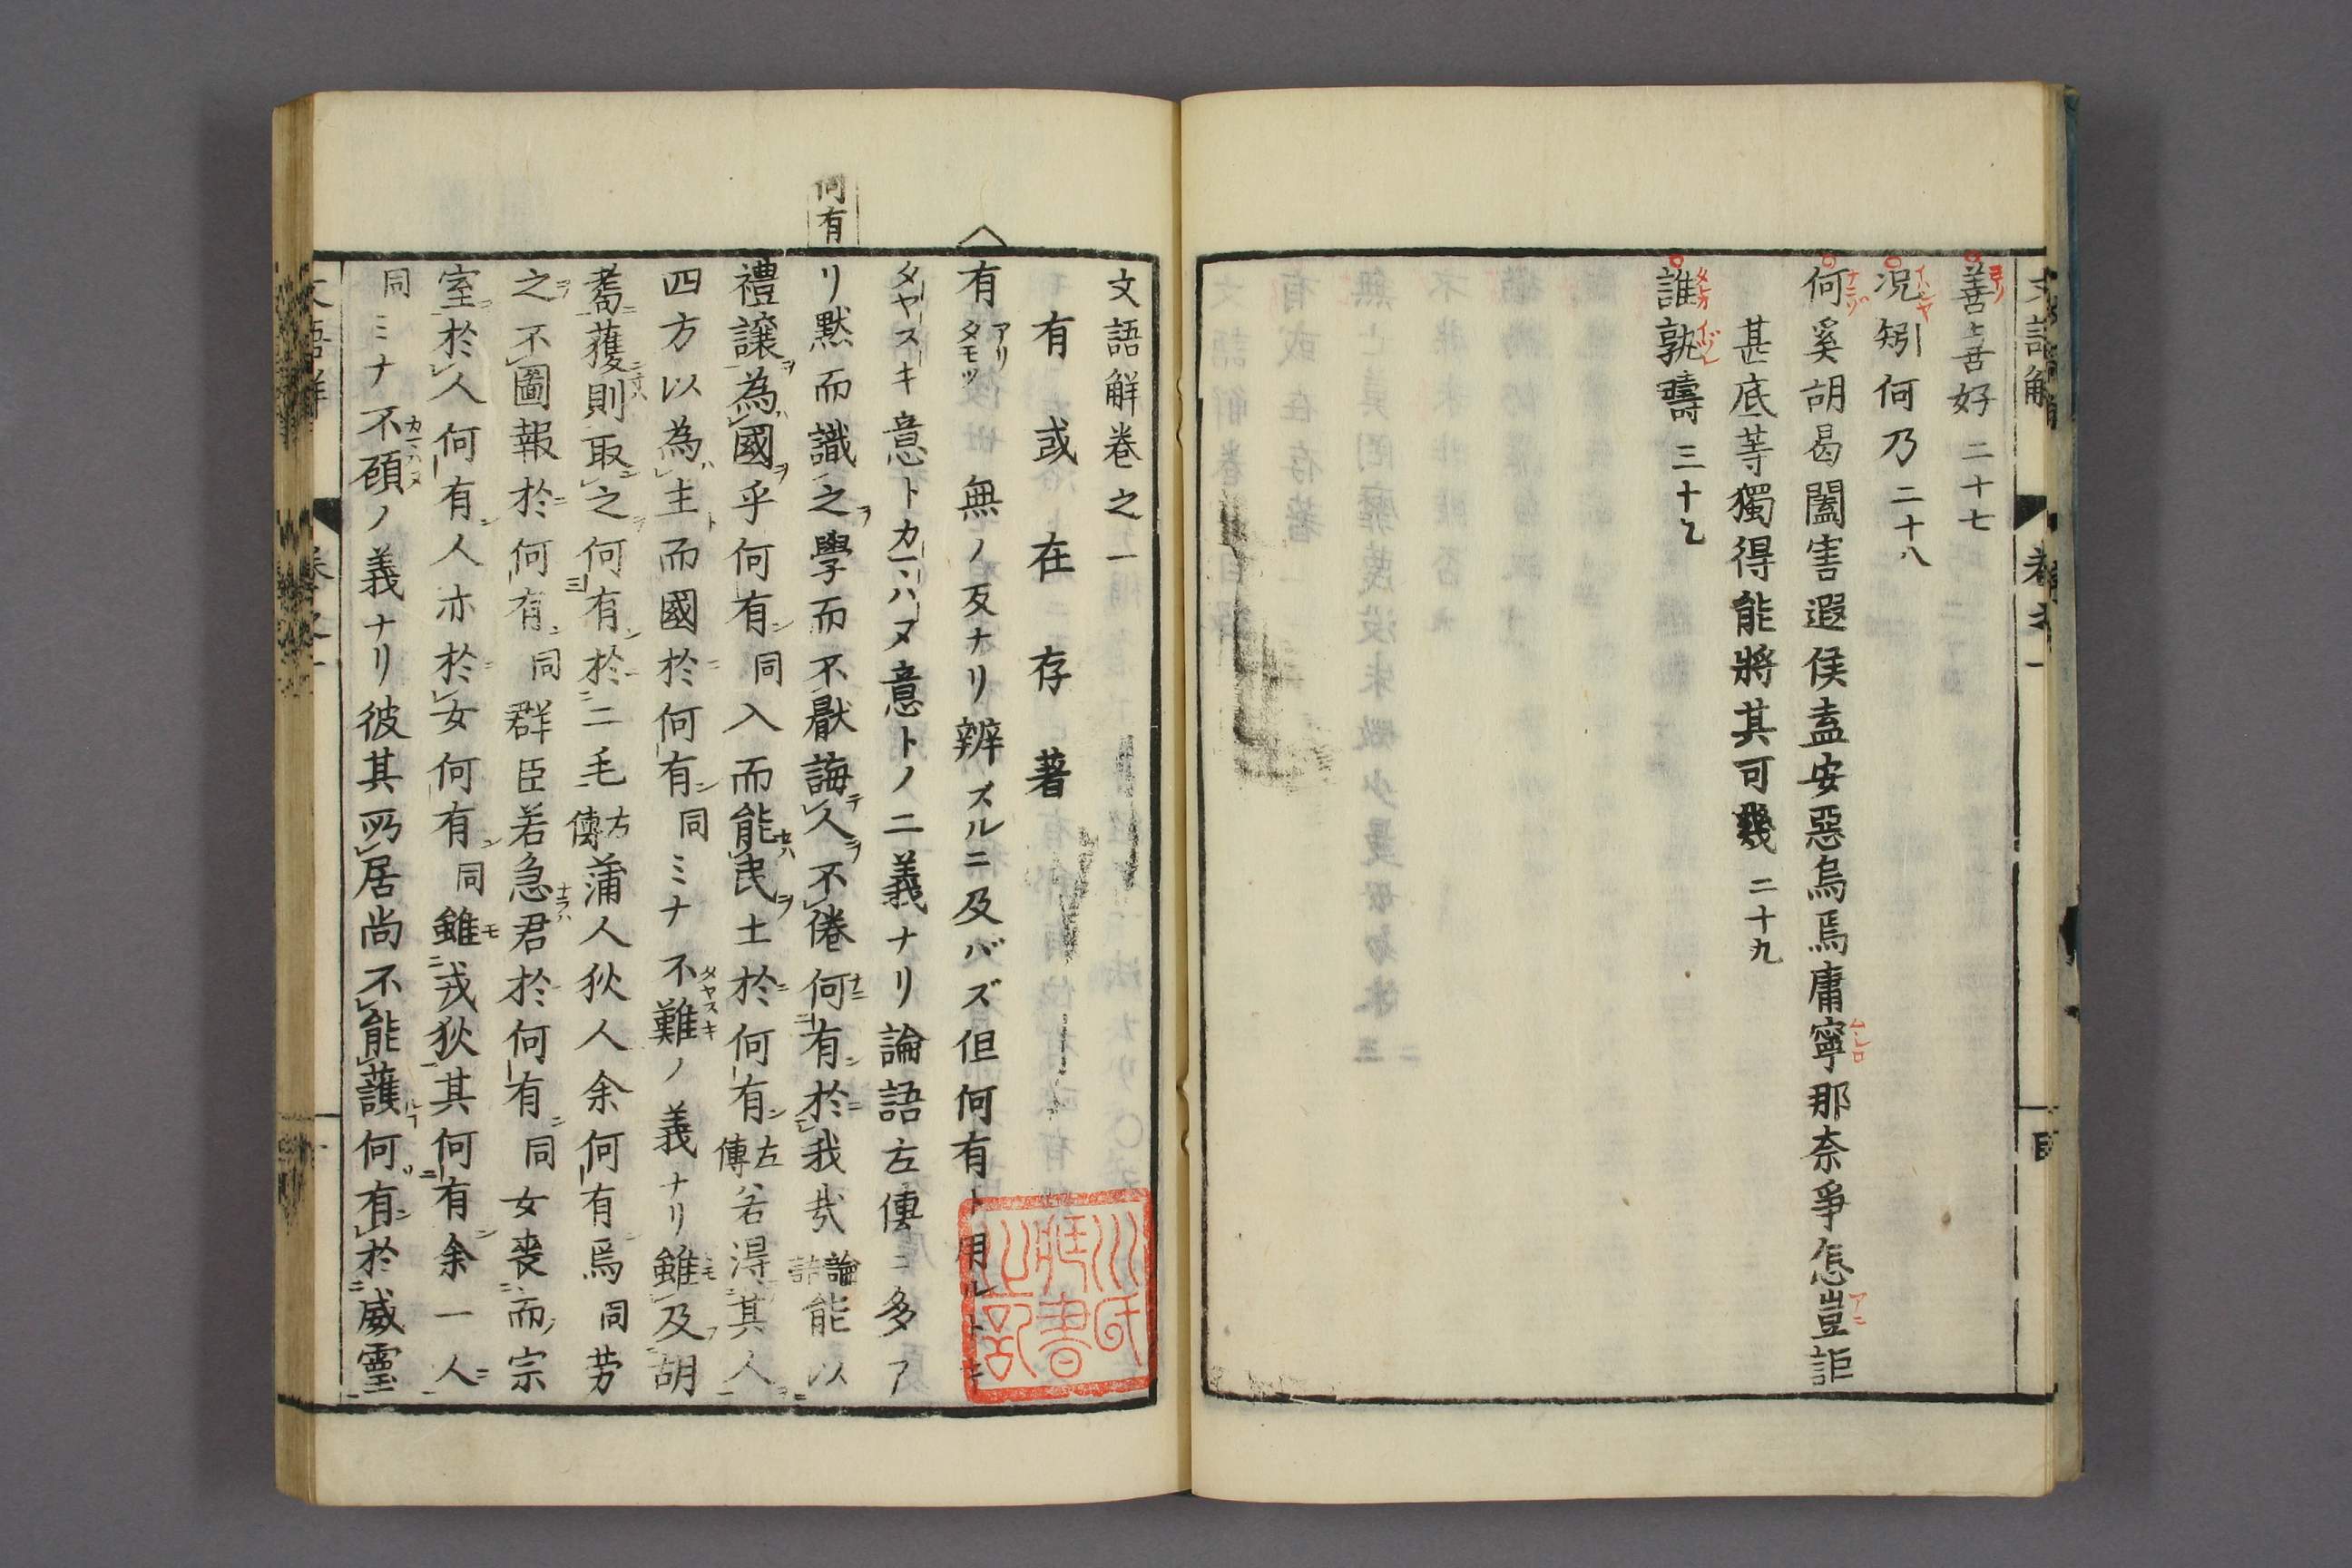 善喜好 二十七
況矧何乃 二十八
何奚胡曷闔害遐侯盍安惡烏焉庸寧那奈爭怎豈詎
甚底等獨得能將其可幾 二十九
誰孰疇 三十七
文語解卷之一
有 或 在 存 著
有 アリ タモツ 無ノ反ナリ辨ズルニ及バズ但何有ト用レトキ
タヤスキ意トカマハヌ意トノ二義ナリ論語左傳ニ多ア
リ默而識之學而不厭誨人不倦何有於我哉 論語 能以
禮讓為國乎何有 同 入而能民土於何有 左傳 若得其人
四方以為主而國於何有 同 ミナ不難ノ義ナリ雖及胡
耇獲則取之何有於二毛 左傳 蒲人狄人余何有焉 同 勞
之不圖報於何有 同 群臣若急君於何有 同 女喪而宗
室於人何有人亦於女何有 同 雖戎狄其何有余一人
同 ミナ不顧ノ義ナリ彼其所居尚不能護何有於威靈
何有
文語解
卷之一